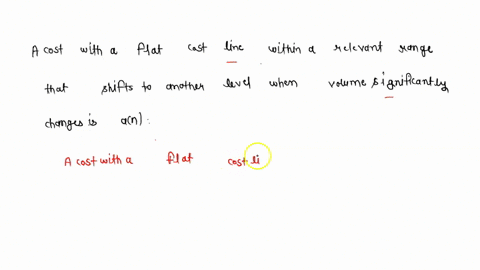 A cost with a flat cost line within a relevant range
that shifts to another level when volume significantly
changes is a(n):
A cost with a flat cost li